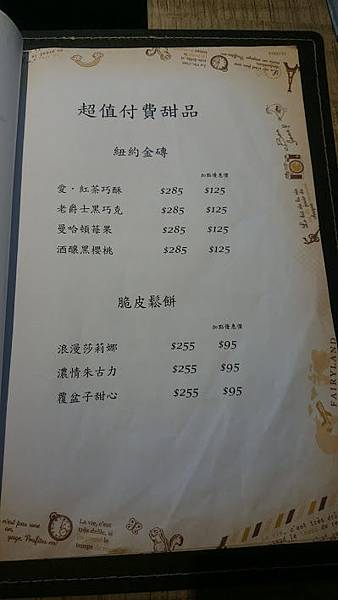 超值付費甜品
紐約金磚
加點優惠價
愛·紅茶巧酥 $285 $125
老爵士黑巧克 $285 $125
曼哈頓莓果 $285 $125
酒釀黑櫻桃 $285 $125
脆皮鬆餅
加點優惠價
浪漫莎莉娜 $255 $95
濃情朱古力 $255 $95
覆盆子甜心 $255 $95
FAIRYLAND
La vie, c'est
très drôle, si
le temps